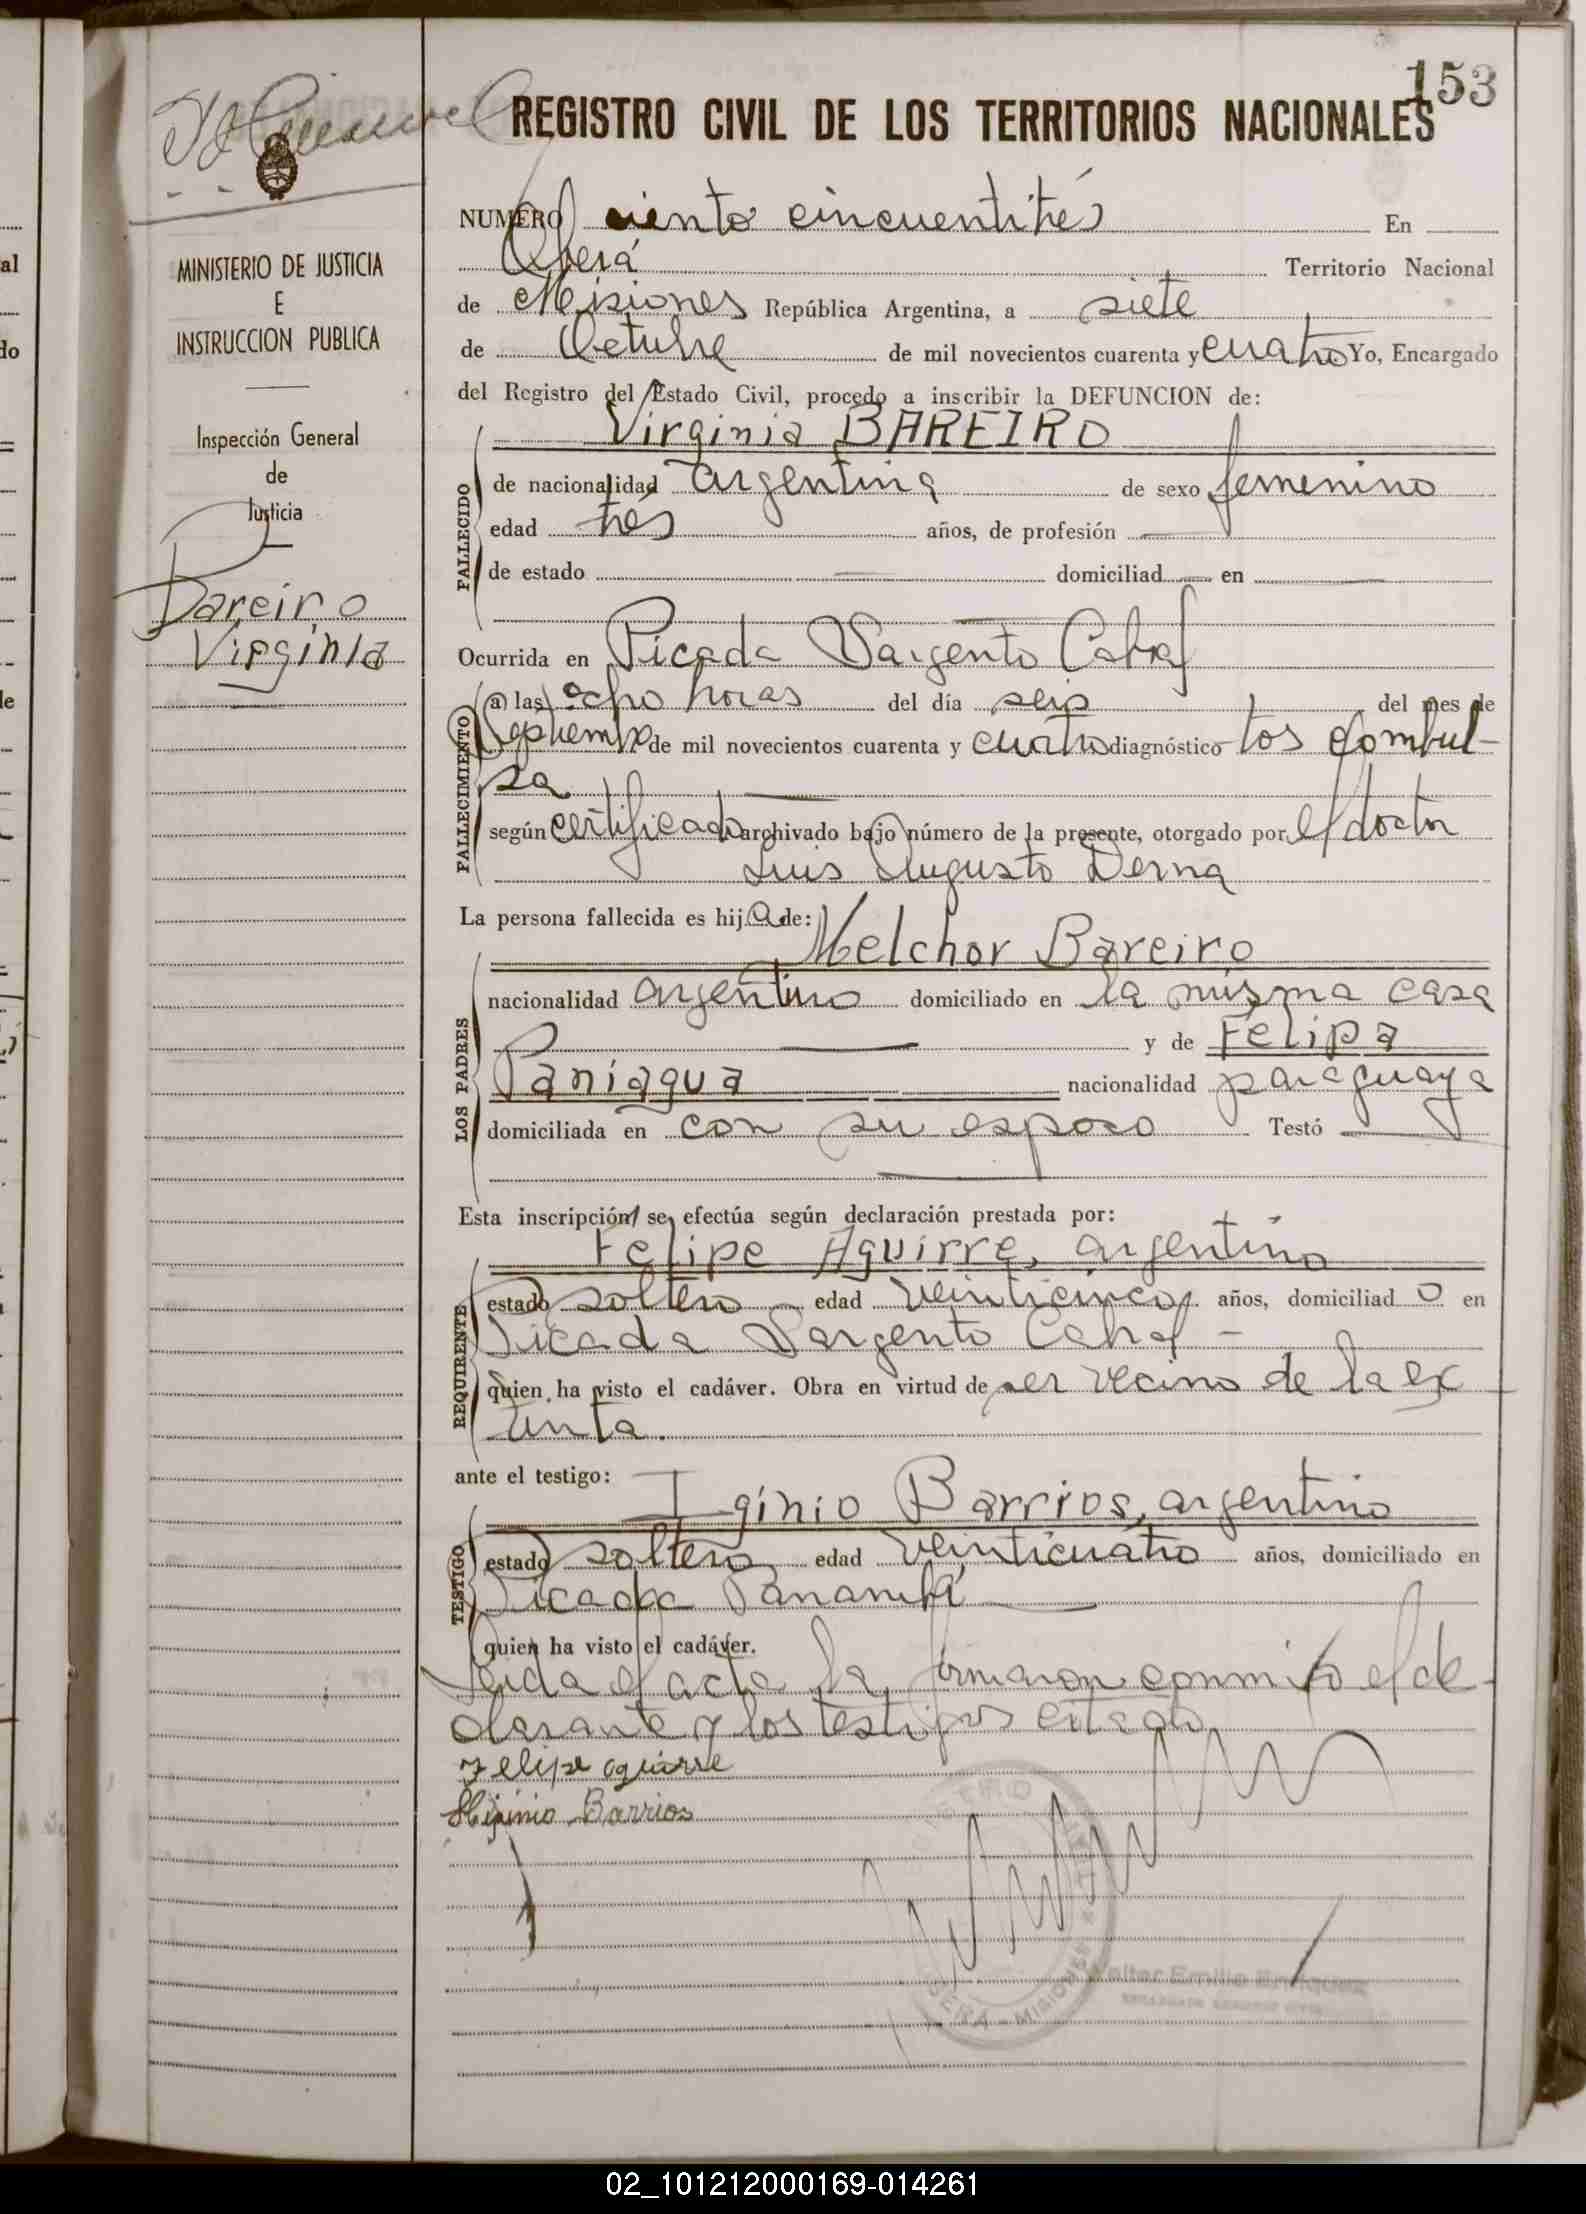 153
REGISTRO CIVIL DE LOS TERRITORIOS NACIONALES
MINISTERIO DE JUSTICIA
E
INSTRUCCION PUBLICA
Inspección General
de
Justicia
Bareiro
Virginia
NUMERO ciento cincuentitrés En
Oberá Territorio Nacional
de Misiones República Argentina, a siete
de Octubre de mil novecientos cuarenta y cuatro Yo, Encargado
del Registro del Estado Civil, procedo a inscribir la DEFUNCION de:
Virginia BAREIRO
FALLECIDO
de nacionalidad argentina de sexo femenino
edad tres años, de profesión —
de estado — domiciliad — en —
Ocurrida en Picada Sargento Cabral
FALLECIMIENTO
a las ocho horas del día seis del mes de
Septiembre de mil novecientos cuarenta y cuatro diagnóstico tos combul-
sa
según certificado archivado bajo número de la presente, otorgado por el doctor
Luis Augusto Derna
La persona fallecida es hija de:
Melchor Bareiro
LOS PADRES
nacionalidad argentino domiciliado en la misma casa
— y de Felipa
Paniagua nacionalidad paraguaya
domiciliada en con su esposo Testó —
Esta inscripción se efectúa según declaración prestada por:
Felipe Aguirre, argentino
REQUIRENTE
estado soltero edad veinticinco años, domiciliado en
Picada Sargento Cabral -
quien ha visto el cadáver. Obra en virtud de ser vecino de la ex
tinta.
ante el testigo:
Iginio Barrios, argentino
TESTIGO
estado soltero edad veinticuatro años, domiciliado en
Picada Panambí
quien ha visto el cadáver.
Leida el acta la firmaron conmigo el de-
clarante y los testigos citado
Felipe aguirre
Higinio Barrios
OBERA - MISIONES
Walter Emilio Enriquez
02_101212000169-014261